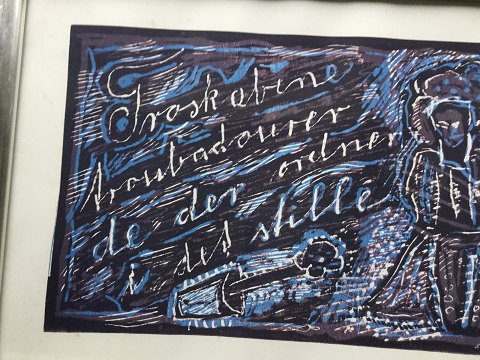 Troskabens
troubadourer
de der ordner
i det stille